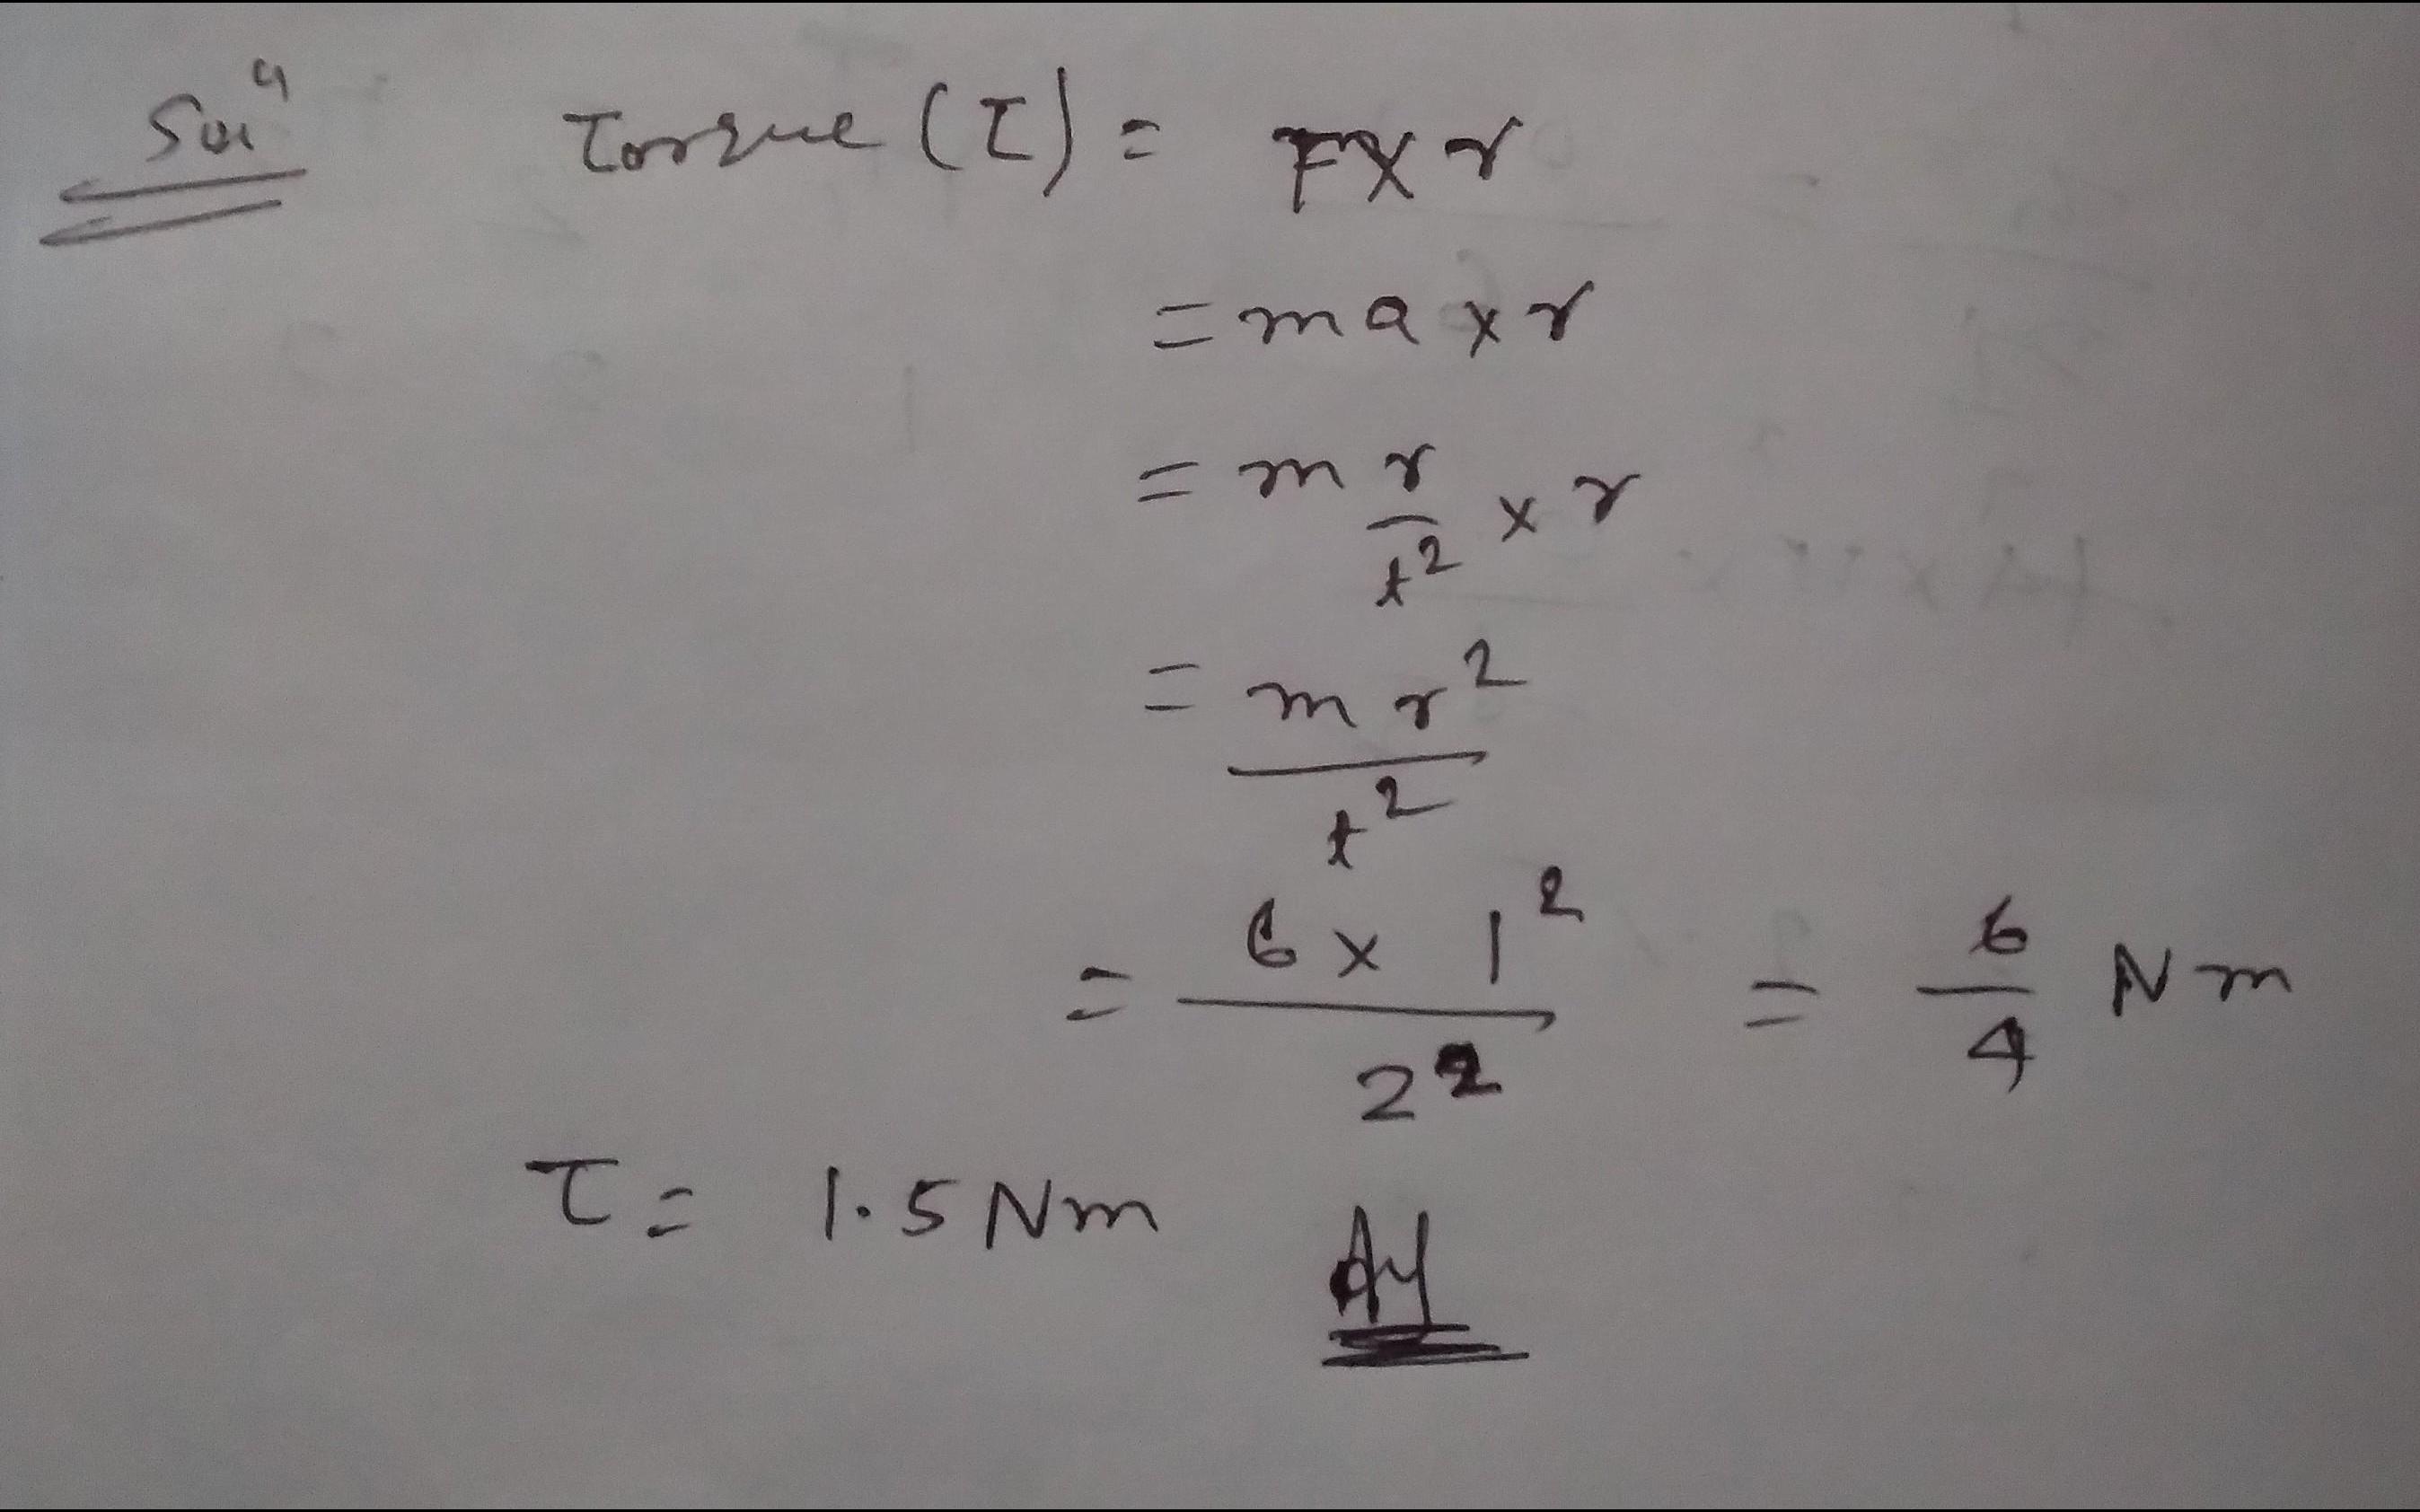 Soln Torque (τ) = F × r
= ma × r
= m r/t² × r
= mr²/t²
= 6 × 1²/2² = 6/4 Nm
τ = 1.5 Nm